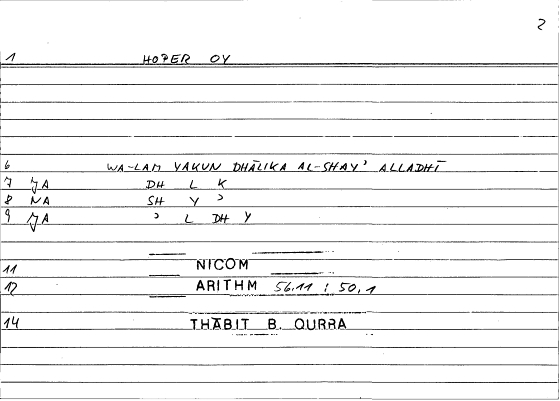 2
1 HOPER OY
6 WA-LAM YAKUN DHĀLIKA AL-SHAYʾ ALLADHĪ
7 JA DH L K
8 NA SH Y ʾ
9 JA ʾ L DH Y
11 NICOM
12 ARITHM 56,11 ; 50,1
14 THĀBIT B. QURRA